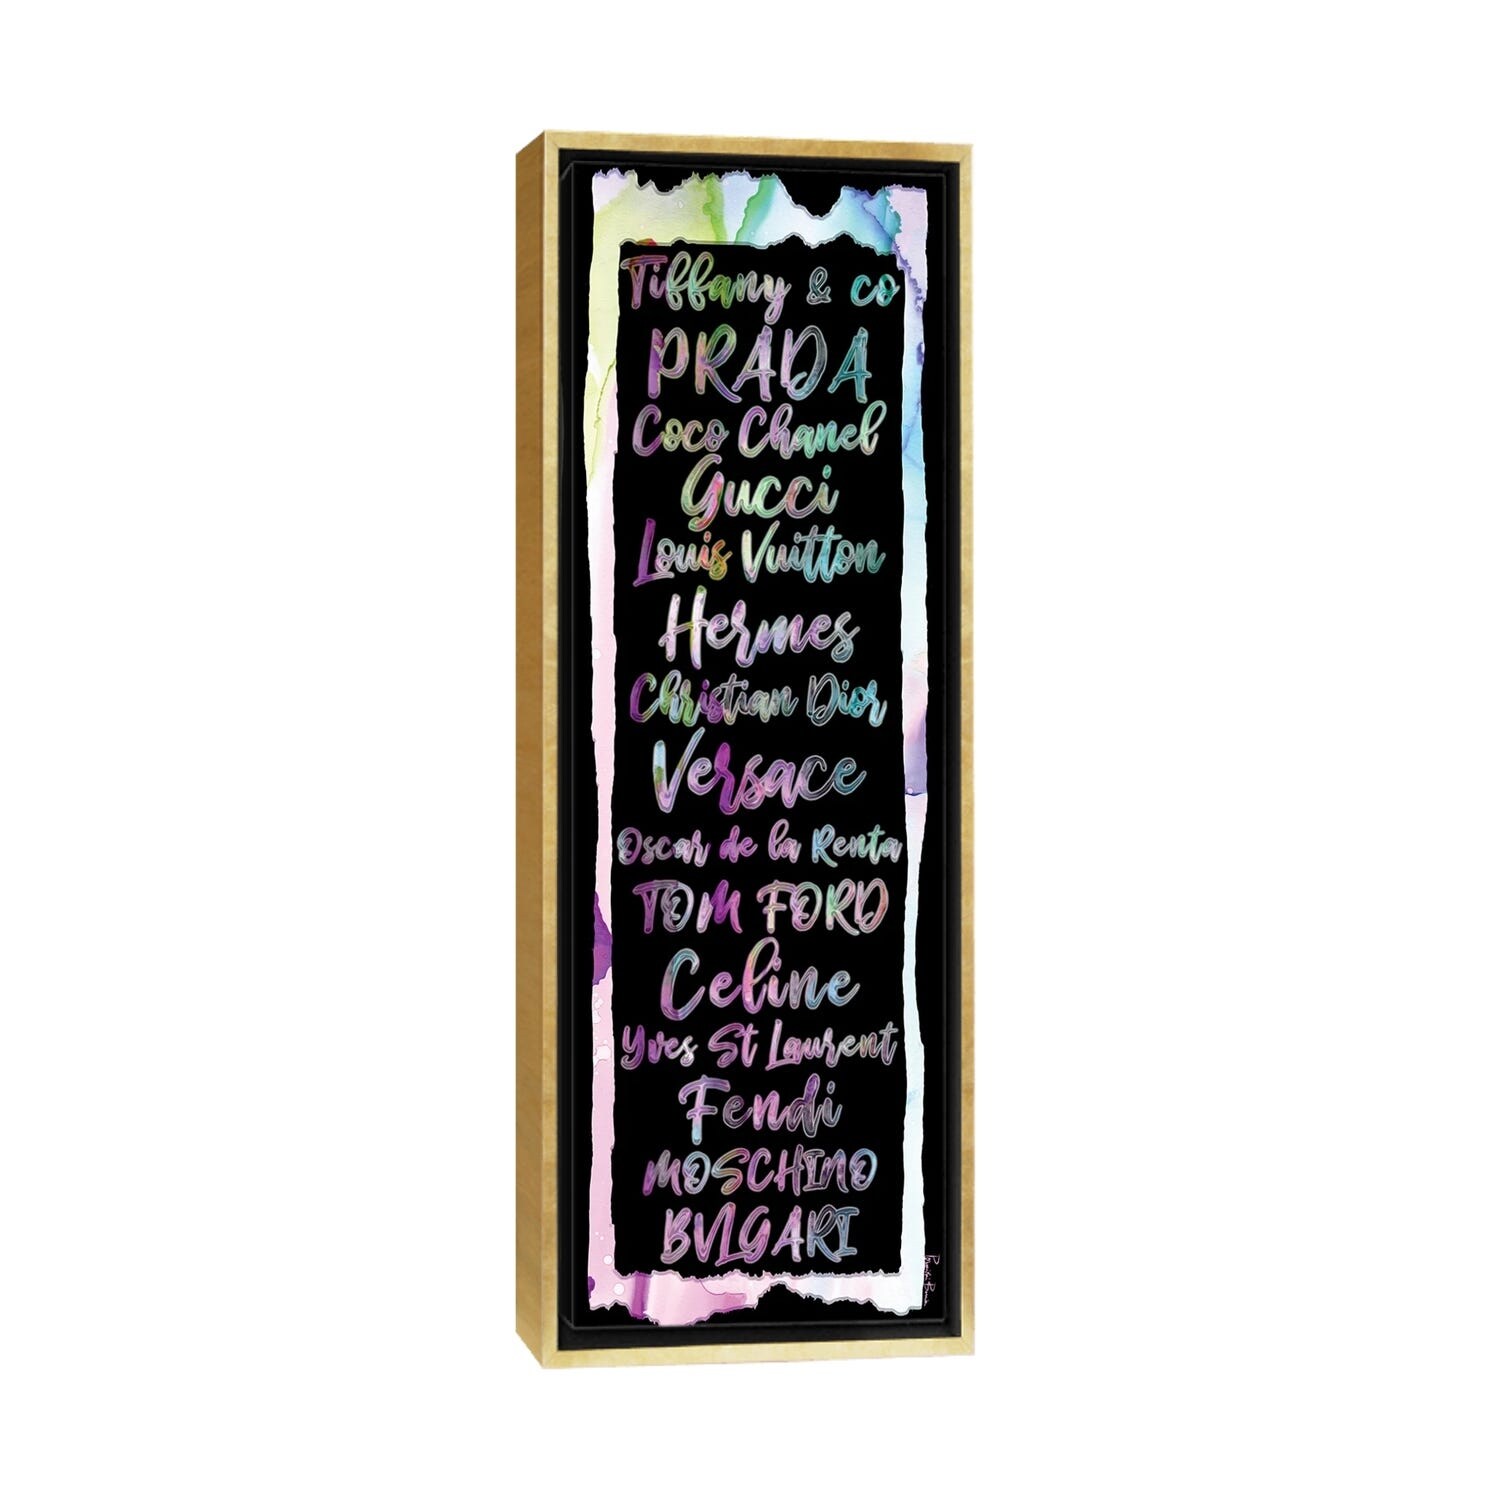 Tiffany & co
PRADA
Coco Chanel
Gucci
Louis Vuitton
Hermes
Christian Dior
Versace
Oscar de la Renta
TOM FORD
Celine
Yves St Laurent
Fendi
MOSCHINO
BVLGARI